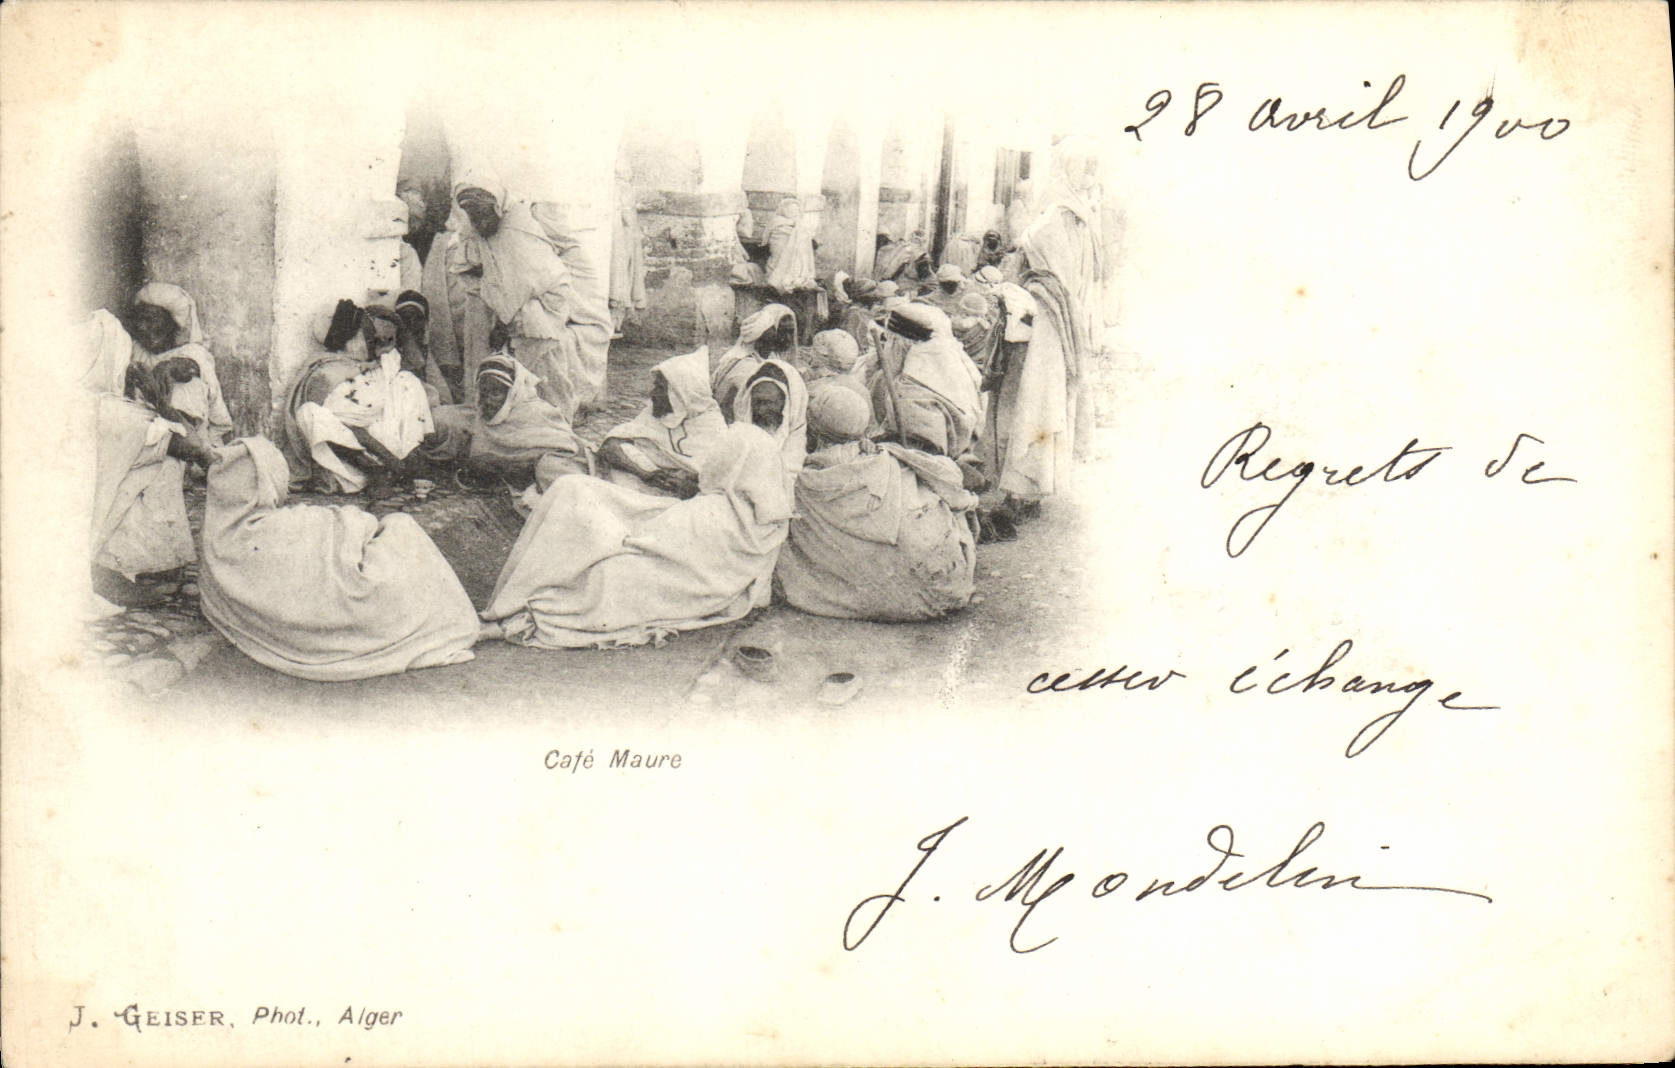 28 avril 1900
Regrets de
cesser échange
J. Mondelin
Café Maure
J. GEISER, Phot., Alger